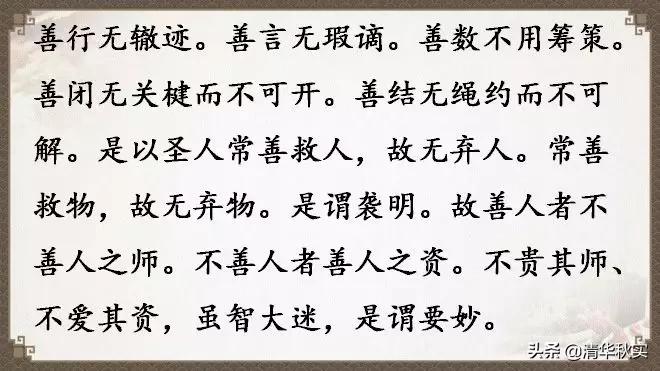 善行无辙迹。善言无瑕谪。善数不用筹策。
善闭无关楗而不可开。善结无绳约而不可
解。是以圣人常善救人，故无弃人。常善
救物，故无弃物。是谓袭明。故善人者不
善人之师。不善人者善人之资。不贵其师、
不爱其资，虽智大迷，是谓要妙。
头条 @清华秋实